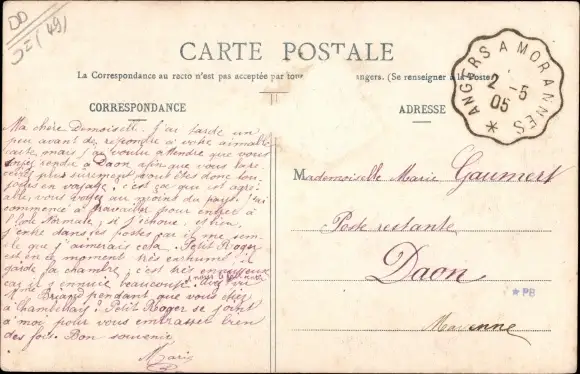 DD
52 (49)
CARTE POSTALE
La Correspondance au recto n'est pas acceptée par tous angers. (Se renseigner à la Poste)
CORRESPONDANCE
ADRESSE
ANGERS A MORANNES
2 -5
05
Ma chère Demoiselle. J'ai tardé un
peu avant de répondre à votre aimable
carte, mais j'ai voulu attendre que vous
rendue à Daon afin que vous
plus sûrement. Vous êtes donc tou-
jours en voyage, c'est ça que est agré-
able, vous voyez au moins du pays. J'ai
commencé à travailler pour entrer à
l'École Normale, si j'échoue, et bien
j'entre dans les postes car il me sem-
ble que j'aimerais cela. Petit Roger
est en ce moment très enrhumé, il
garde la chambre, c'est très ennuyeux
car il s'ennuie beaucoup. Avez-vous vu
M. Briand pendant que vous étiez
à Chambellay? Petit Roger se joint
à moi pour vous embrasser bien
des fois. Bon souvenir
Marie
Mademoiselle Marie Gaumert
Poste restante
Daon
*PB
Mayenne